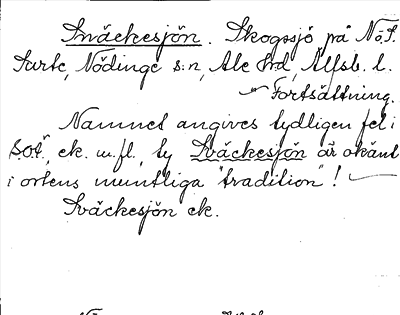 Snäckesjön. Skogssjö på NoS.
Surte, Nödinge s:n, Ale hrd, Älfsb. l.
Fortsättning.
Namnet angives tydligen fel i
SOÄ, ek. m.fl., ty Sväckesjön är okänt
i ortens muntliga "tradition"!
Sväckesjön ek.